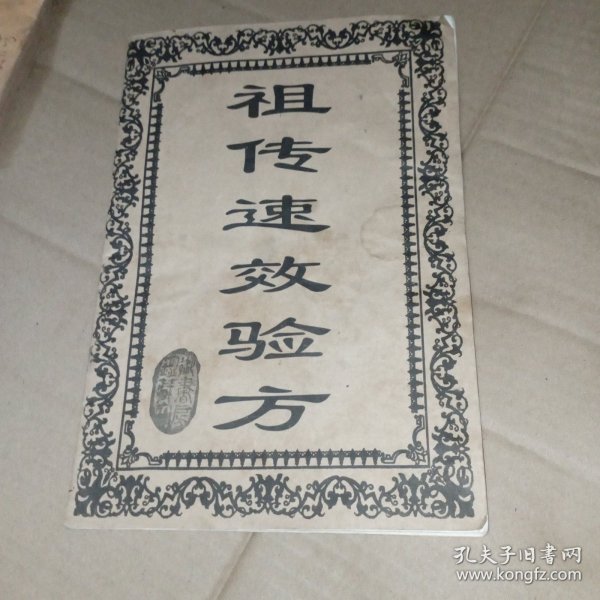 祖传速效验方
孔夫子旧书网
www.kongfz.com